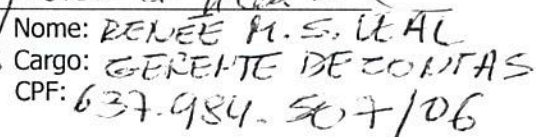 Nome: RENÉE M. S. LEAL
Cargo: GERENTE DE CONTAS
CPF: 637.984.507/06